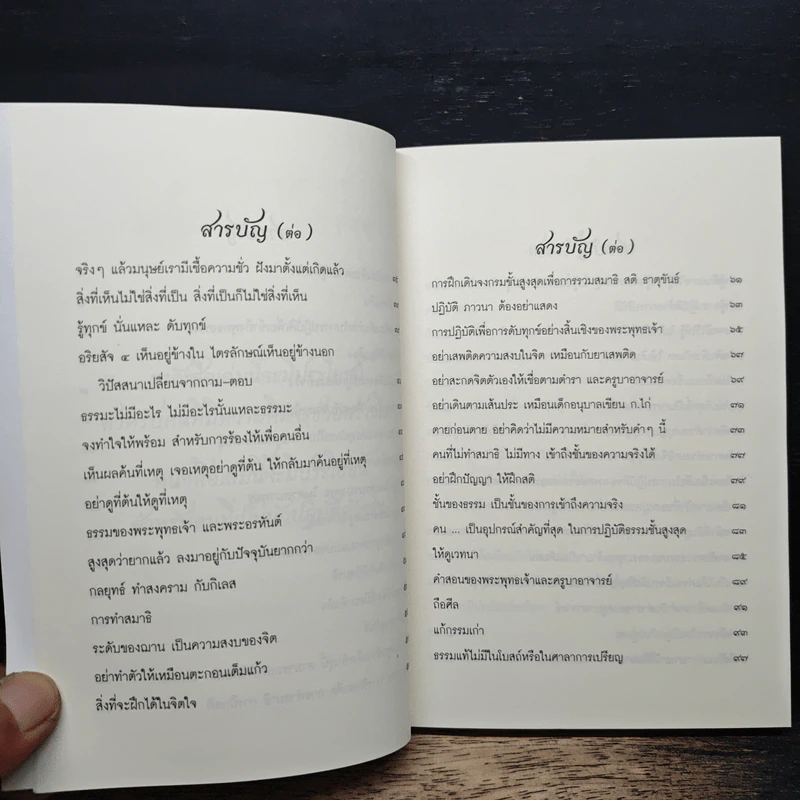 สารบัญ (ต่อ)
จริงๆ แล้วมนุษย์เรามีเชื้อความชั่ว ฝังมาตั้งแต่เกิดแล้ว
สิ่งที่เห็นไม่ใช่สิ่งที่เป็น สิ่งที่เป็นก็ไม่ใช่สิ่งที่เห็น
รู้ทุกข์ นั่นแหละ ดับทุกข์
อริยสัจ ๔ เห็นอยู่ข้างใน ไตรลักษณ์เห็นอยู่ข้างนอก
วิปัสสนาเปลี่ยนจากถาม-ตอบ
ธรรมะไม่มีอะไร ไม่มีอะไรนั้นแหละธรรมะ
จงทำใจให้พร้อม สำหรับการร้องไห้เพื่อคนอื่น
เห็นผลค้นที่เหตุ เจอเหตุอย่าดูที่ต้น ให้กลับมาค้นอยู่ที่เหตุ
อย่าดูที่ต้นให้ดูที่เหตุ
ธรรมของพระพุทธเจ้า และพระอรหันต์
สูงสุดว่ายากแล้ว ลงมาอยู่กับปัจจุบันยากกว่า
กลยุทธ์ ทำสงคราม กับกิเลส
การทำสมาธิ
ระดับของฌาน เป็นความสงบของจิต
อย่าทำตัวให้เหมือนตะกอนเต็มแก้ว
สิ่งที่จะฝึกได้ในจิตใจ
สารบัญ (ต่อ)
การฝึกเดินจงกรมขั้นสูงสุดเพื่อการรวมสมาธิ สติ ธาตุขันธ์ ๖๑
ปฏิบัติ ภาวนา ต้องอย่าแสดง ๖๓
การปฏิบัติเพื่อการดับทุกข์อย่างสิ้นเชิงของพระพุทธเจ้า ๖๕
อย่าเสพติดความสงบในจิต เหมือนกับยาเสพติด ๖๗
อย่าสะกดจิตตัวเองให้เชื่อตามตำรา และครูบาอาจารย์ ๖๙
อย่าเดินตามเส้นประ เหมือนเด็กอนุบาลเขียน ก.ไก่ ๗๑
ตายก่อนตาย อย่าคิดว่าไม่มีความหมายสำหรับคำๆ นี้ ๗๓
คนที่ไม่ทำสมาธิ ไม่มีทาง เข้าถึงชั้นของความจริงได้ ๗๗
อย่าฝึกปัญญา ให้ฝึกสติ ๗๙
ชั้นของธรรม เป็นชั้นของการเข้าถึงความจริง ๘๑
คน ... เป็นอุปกรณ์สำคัญที่สุด ในการปฏิบัติธรรมชั้นสูงสุด ๘๓
ให้ดูเวทนา ๘๕
คำสอนของพระพุทธเจ้าและครูบาอาจารย์ ๘๙
ถือศีล ๙๑
แก้กรรมเก่า ๙๓
ธรรมแท้ไม่มีในโบสถ์หรือในศาลาการเปรียญ ๙๗